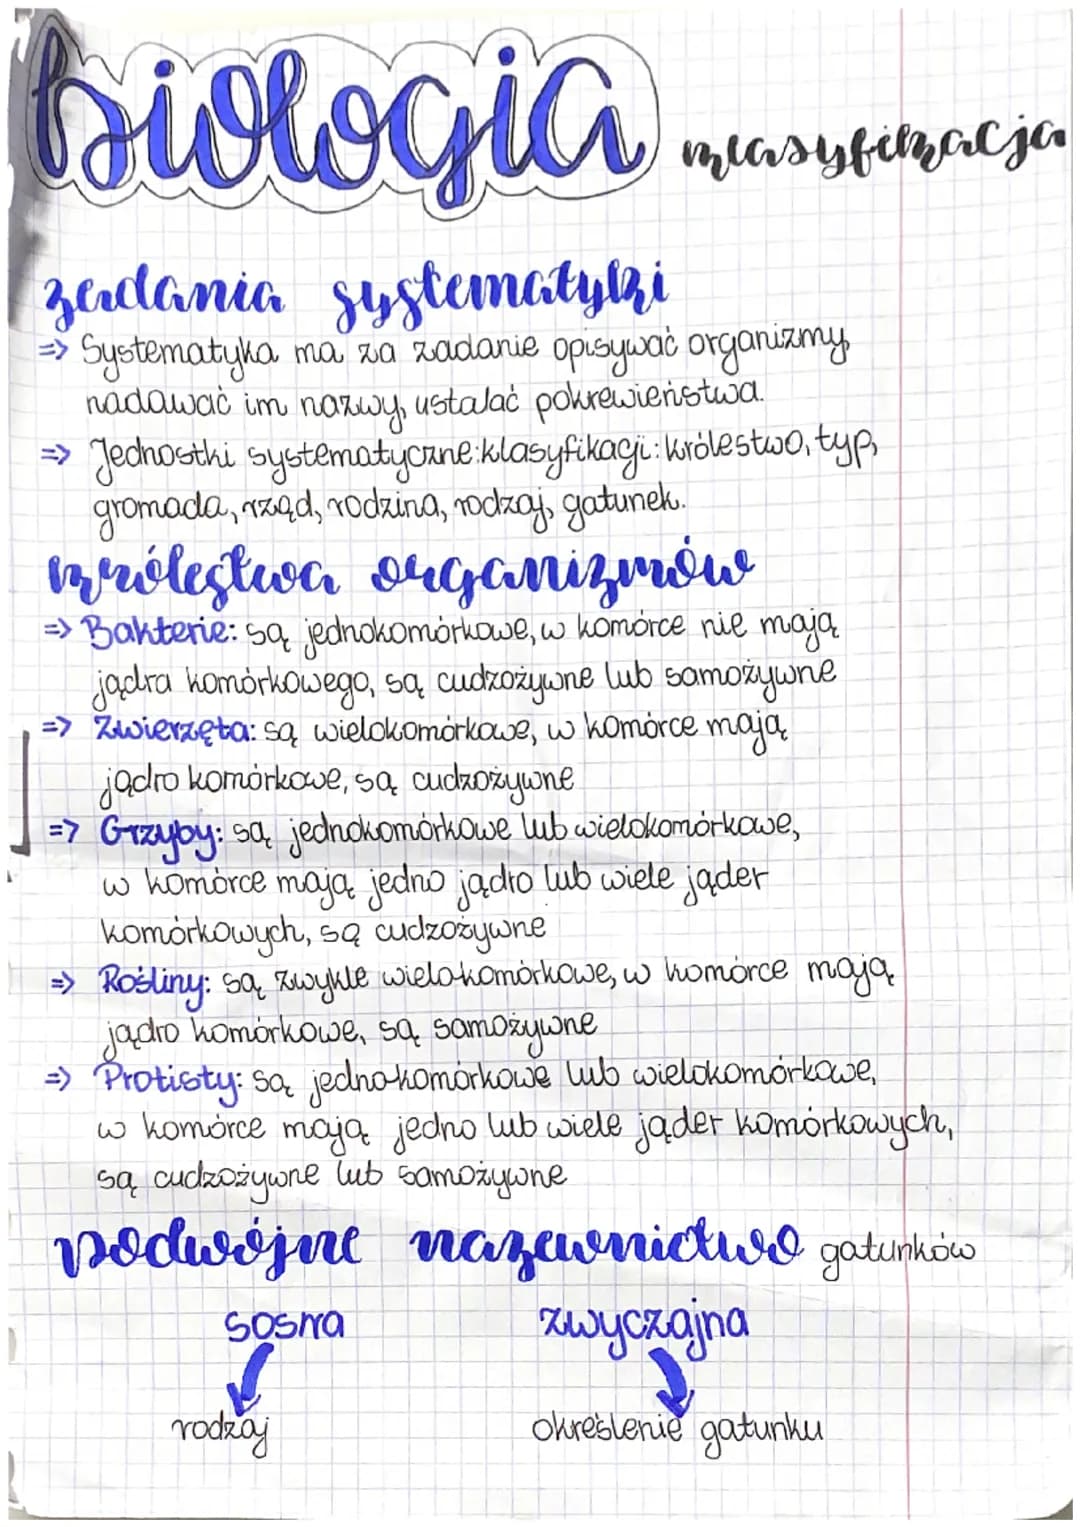 biologia klasyfikacja
zadania systematyki
=> Systematyka ma za zadanie opisywać organizmy,
nadawać im nazwy, ustalać pokrewieństwa.
=> Jednostki systematyczne:klasyfikacji: królestwo, typ,
gromada, rząd, rodzina, rodzaj, gatunek.
królestwa organizmów
=> Bakterie: są jednokomórkowe, w komórce nie mają
jądra komórkowego, są cudzożywne lub samożywne
=> Zwierzęta: są wielokomórkowe, w komórce mają
jądro komórkowe, są cudzożywne
=> Grzyby: są jednokomórkowe lub wielokomórkowe,
w komórce mają jedno jądro lub wiele jąder
komórkowych, są cudzożywne
=> Rośliny: są zwykle wielokomórkowe, w komórce mają
jądro komórkowe, są samożywne
=> Protisty: są jednokomórkowe lub wielokomórkowe,
w komórce mają jedno lub wiele jąder komórkowych,
są cudzożywne lub samożywne
podwójne nazewnictwo gatunków
sosna zwyczajna
rodzaj określenie gatunku